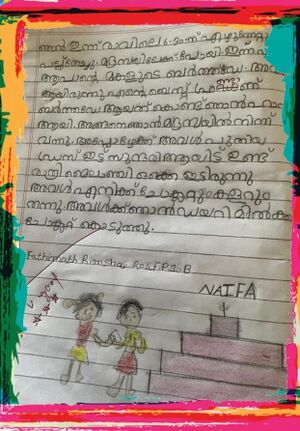 ഞാൻ ഇന്ന് രാവിലെ 6.30ന് എഴുന്നേറ്റു
മദ്രസയിലേക്ക് പോയി. ഇന്ന്
മകളുടെ ബർത്ത്ഡേ
ആയിരുന്നു. എന്റെ ബെസ്റ്റ് ഫ്രണ്ടാണ്
ബർത്തഡേ ആയത് കൊണ്ട് ഞാൻ
ആയി. അങ്ങനെ ഞാൻ മദ്രസയിൽ നിന്ന്
വന്നു. അപ്പോഴേക്ക് അവൾ പുതിയ
ഡ്രസ് ഇട്ട് സുന്ദരി ആയിട്ട് ഉണ്ട്
മൈലാഞ്ചി ഒക്കെ ഇട്ടിരുന്നു
അവൾ എനിക്ക് ചോക്ലേറ്റും കളറും
തന്നു. അവൾക്ക് ഞാൻ ഡയറി മിൽക്ക്
ചോക്ലേറ്റ് കൊടുത്തു.
Fathimath Rimsha
good
NAIFA